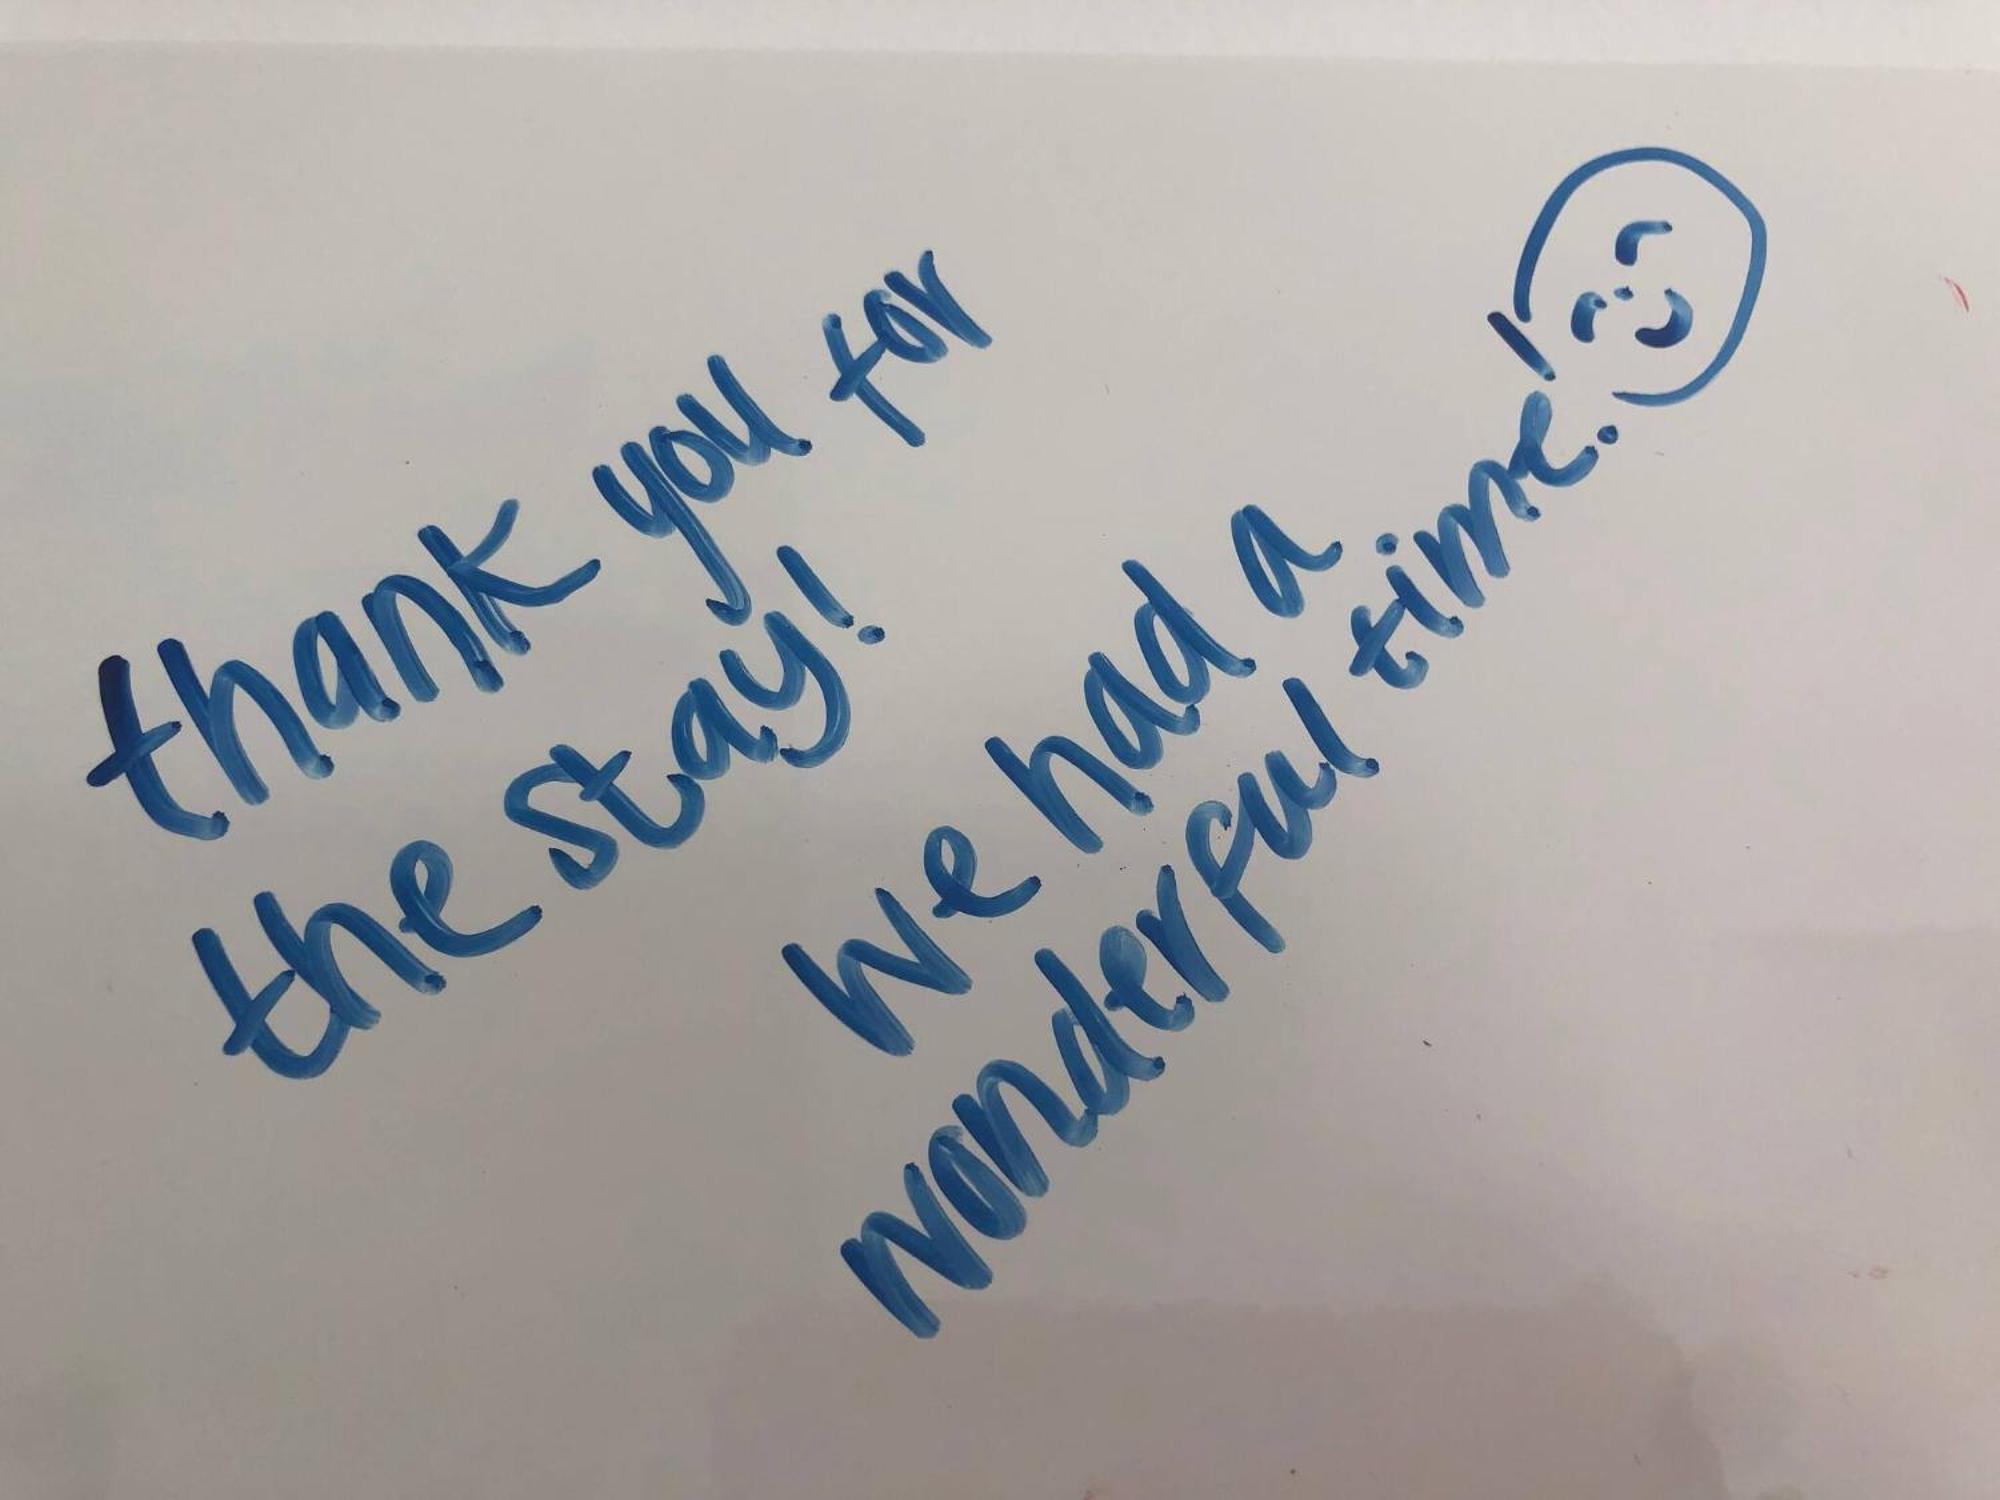 thank you for
the stay!
We had a
wonderful time!